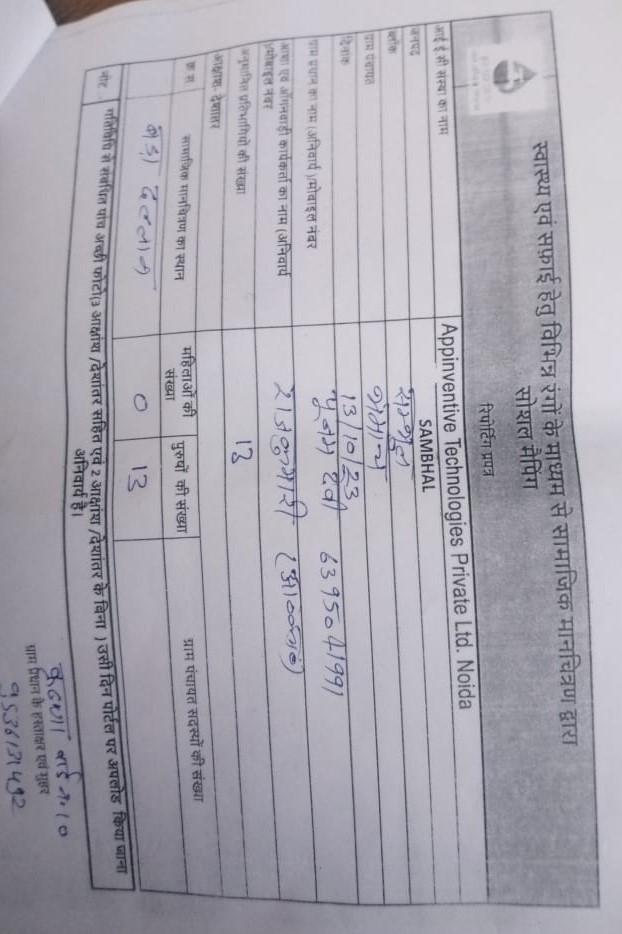 स्वास्थ्य एवं सफ़ाई हेतु विभिन्न रंगों के माध्यम से सामाजिक मानचित्रण द्वारा
सोशल मैपिंग
रिपोर्टिंग प्रपत्र
आई ई सी संस्था का नाम Appinventive Technologies Private Ltd. Noida
जनपद SAMBHAL
ब्लॉक
ग्राम पंचायत
दिनांक 13/10/23
ग्राम प्रधान का नाम (अनिवार्य )/मोबाइल नंबर पूनम देवी 6395041991
आशा एवं आँगनवाड़ी कार्यकर्ता का नाम (अनिवार्य
)/मोबाइल नंबर राजकुमारी
अनुमानित प्रतिभागियों की संख्या 13
आक्षांश- देशांतर
क्र.स. सामाजिक मानचित्रण का स्थान महिलाओं की संख्या पुरुषों की संख्या ग्राम पंचायत सदस्यों की संख्या
0 13
नोट : गतिविधि से संबंधित पांच अच्छी फोटो(3 आक्षांश /देशांतर सहित एवं 2 आक्षांश /देशांतर के बिना ) उसी दिन पोर्टल पर अपलोड किया जाना
अनिवार्य है।
वार्ड नं० 10
ग्राम प्रधान के हस्ताक्षर एवं मुहर